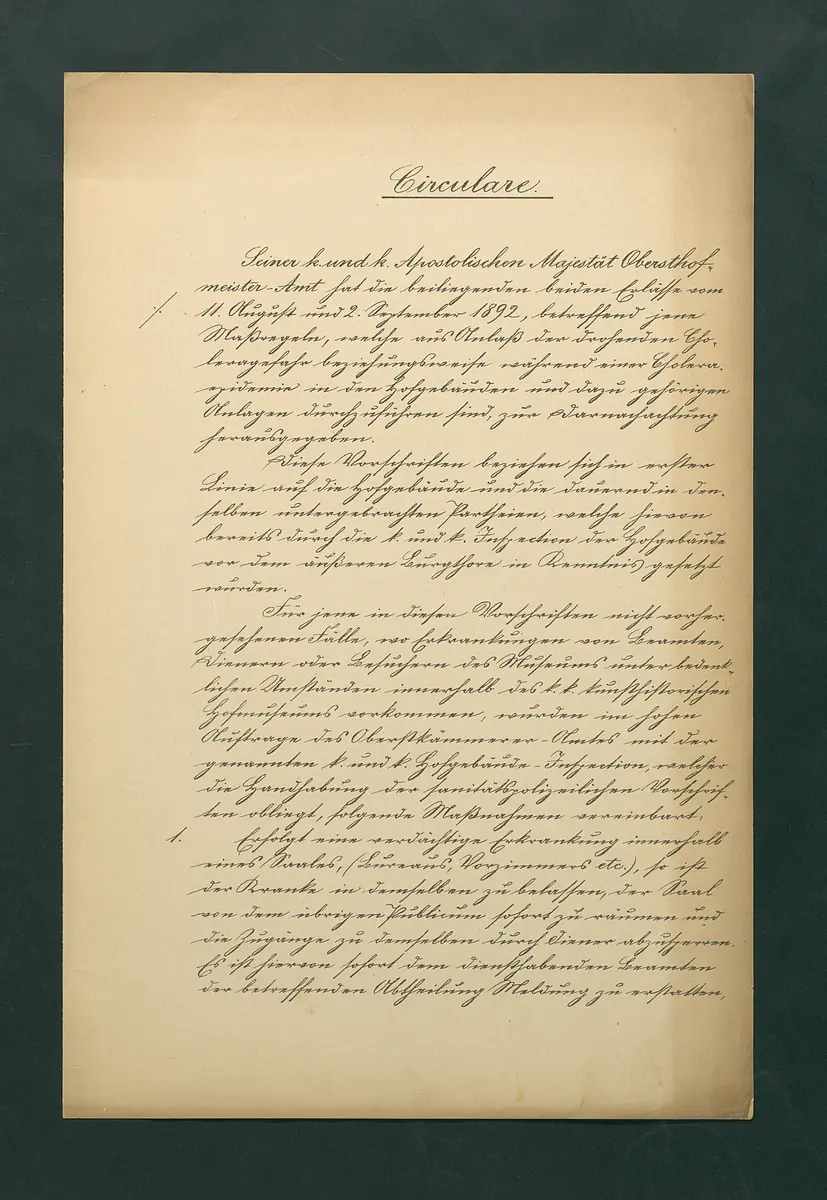 Circulare.
Seiner k. und k. Apostolischen Majestät Obersthof-
meister-Amt hat die beiliegenden beiden Erlässe vom
./. 11. August und 2. September 1892, betreffend jene
Maßregeln, welche aus Anlaß der drohenden Cho-
leragefahr beziehungsweise während einer Cholera-
epidemie in den Hofgebäuden und dazu gehörigen
Anlagen durchzuführen sind, zur Darnachachtung
herausgegeben.
Diese Vorschriften beziehen sich in erster
Linie auf die Hofgebäude und die dauernd in den-
selben untergebrachten Partheien, welche hievon
bereits durch die k. und k. Inspection der Hofgebäude
vor dem äußeren Burgthore in Kenntnis gesetzt
wurden.
Für jene in diesen Vorschriften nicht vorher-
gesehenen Fälle, wo Erkrankungen von Beamten,
Dienern oder Besuchern des Museums unter bedenk-
lichen Umständen innerhalb des k. k. kunsthistorischen
Hofmuseums vorkommen, wurden im hohen
Auftrage des Oberstkämmerer-Amtes mit der
genannten k. und k. Hofgebäude-Inspection, welcher
die Handhabung der sanitätspolizeilichen Vorschrif-
ten obliegt, folgende Maßnahmen vereinbart:
1. Erfolgt eine verdächtige Erkrankung innerhalb
eines Saales, (Bureaus, Vorzimmers etc.), so ist
der Kranke in demselben zu belassen, der Saal
von dem übrigen Publicum sofort zu räumen und
die Zugänge zu demselben durch Diener abzusperren.
Es ist hiervon sofort dem diensthabenden Beamten
der betreffenden Abtheilung Meldung zu erstatten,